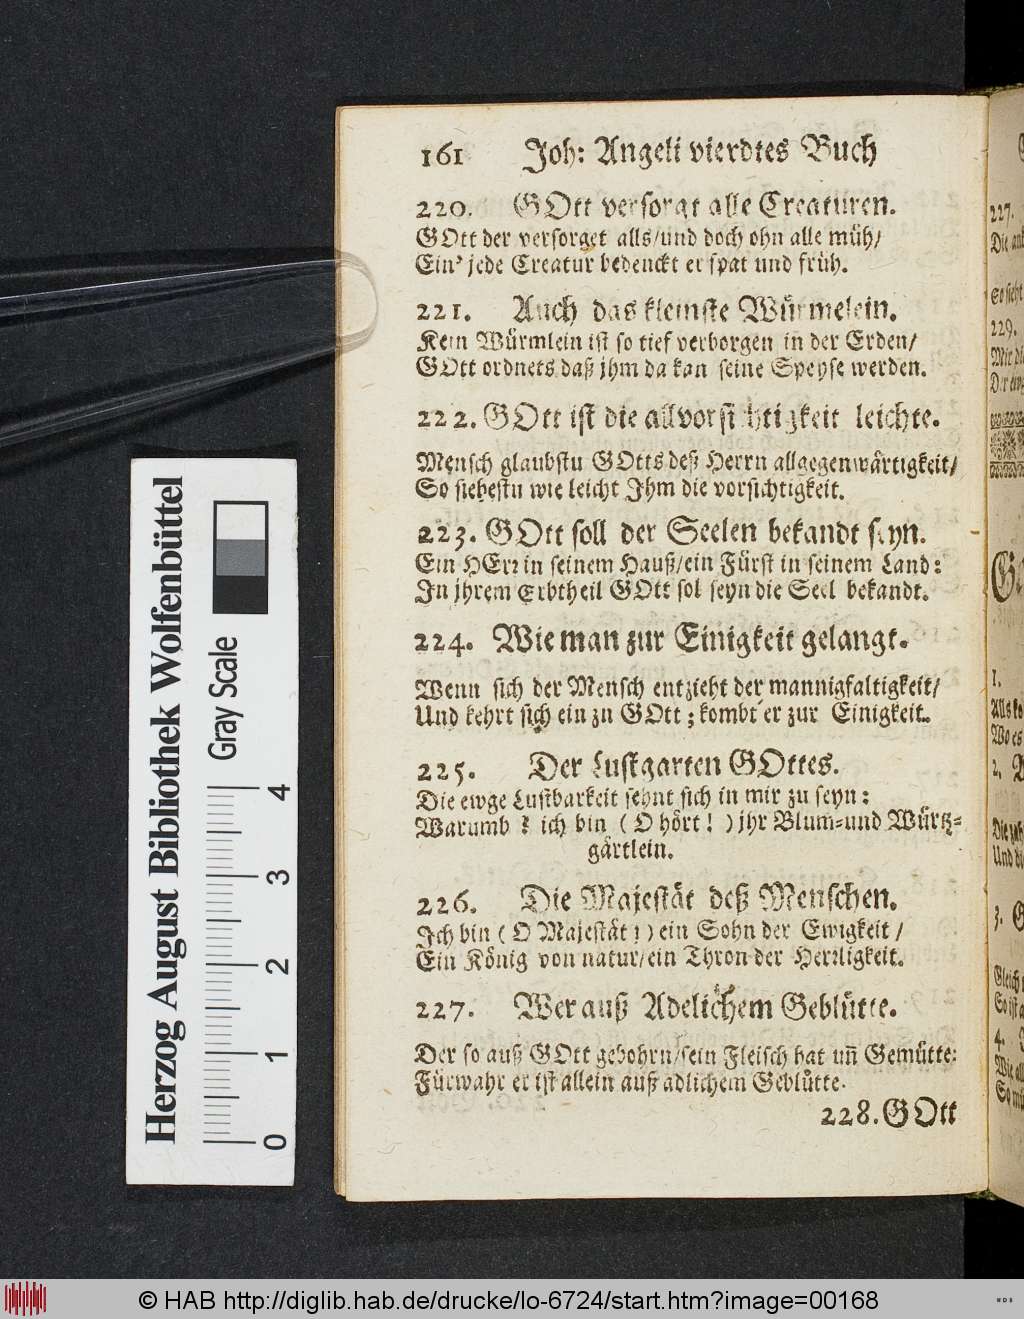 161 Joh: Angeli vierdtes Buch
220. GOtt versorgt alle Creaturen.
GOtt der versorget alls/und doch ohn alle müh/
Ein' jede Creatur bedenckt er spat und früh.
221. Auch das kleinste Würmelein.
Kein Würmlein ist so tief verborgen in der Erden/
GOtt ordnets daß jhm da kan seine Speyse werden.
222. GOtt ist die allvorsichtigkeit leichte.
Mensch glaubstu GOtts deß Herrn allgegenwärtigkeit/
So siehestu wie leicht Jhm die vorsichtigkeit.
223. GOtt soll der Seelen bekandt seyn.
Ein HErr in seinem Hauß/ein Fürst in seinem Land:
In jhrem Erbtheil GOtt sol seyn die Seel bekandt.
224. Wie man zur Einigkeit gelangt.
Wenn sich der Mensch entzieht der mannigfaltigkeit/
Und kehrt sich ein zu GOtt; kombt er zur Einigkeit.
225. Der Lustgarten GOttes.
Die ewge Lustbarkeit sehnt sich in mir zu seyn:
Warumb? ich bin (O hört!) jhr Blum-und Würtz-
gärtlein.
226. Die Majestät deß Menschen.
Jch bin (O Majestät!) ein Sohn der Ewigkeit/
Ein König von natur/ein Thron der Herrligkeit.
227. Wer auß Adelichem Geblütte.
Der so auß GOtt gebohrn/sein Fleisch hat uñ Gemütte:
Fürwahr er ist allein auß adlichem Geblütte.
228. GOtt
Herzog August Bibliothek Wolfenbüttel
Gray Scale
0 1 2 3 4
227.
229.
1.
2.
3.
4.
© HAB http://diglib.hab.de/drucke/lo-6724/start.htm?image=00168